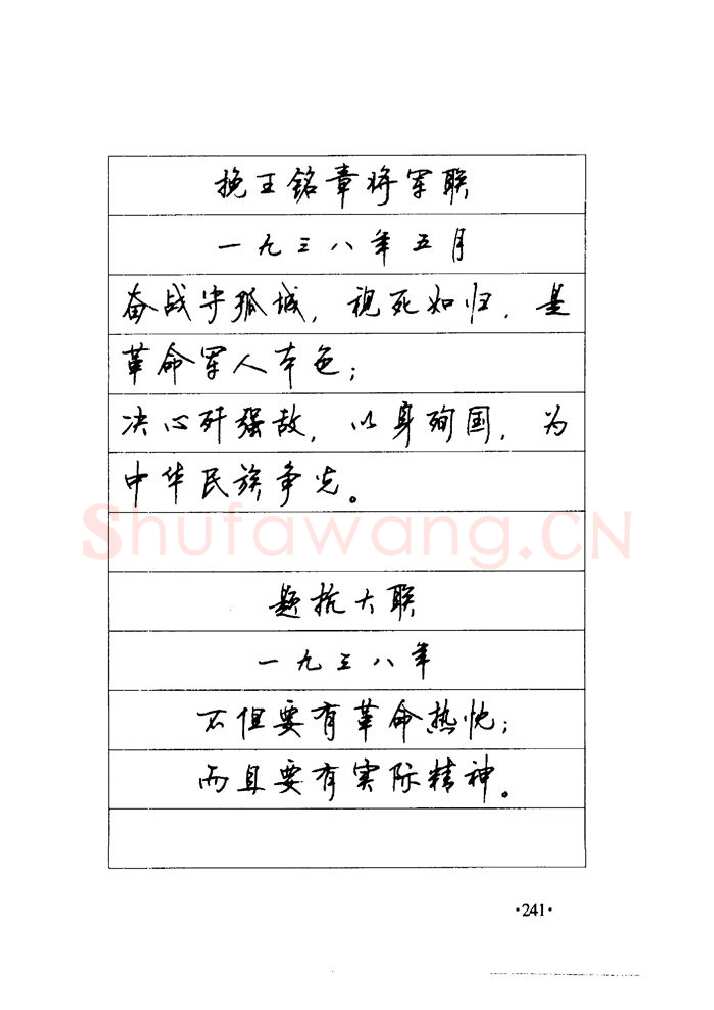 挽王铭章将军联
一九三八年五月
奋战守孤城，视死如归，是
革命军人本色；
决心歼强敌，以身殉国，为
中华民族争光。
Shufawang.CN
题抗大联
一九三八年
不但要有革命热忱；
而且要有实际精神。
·241·